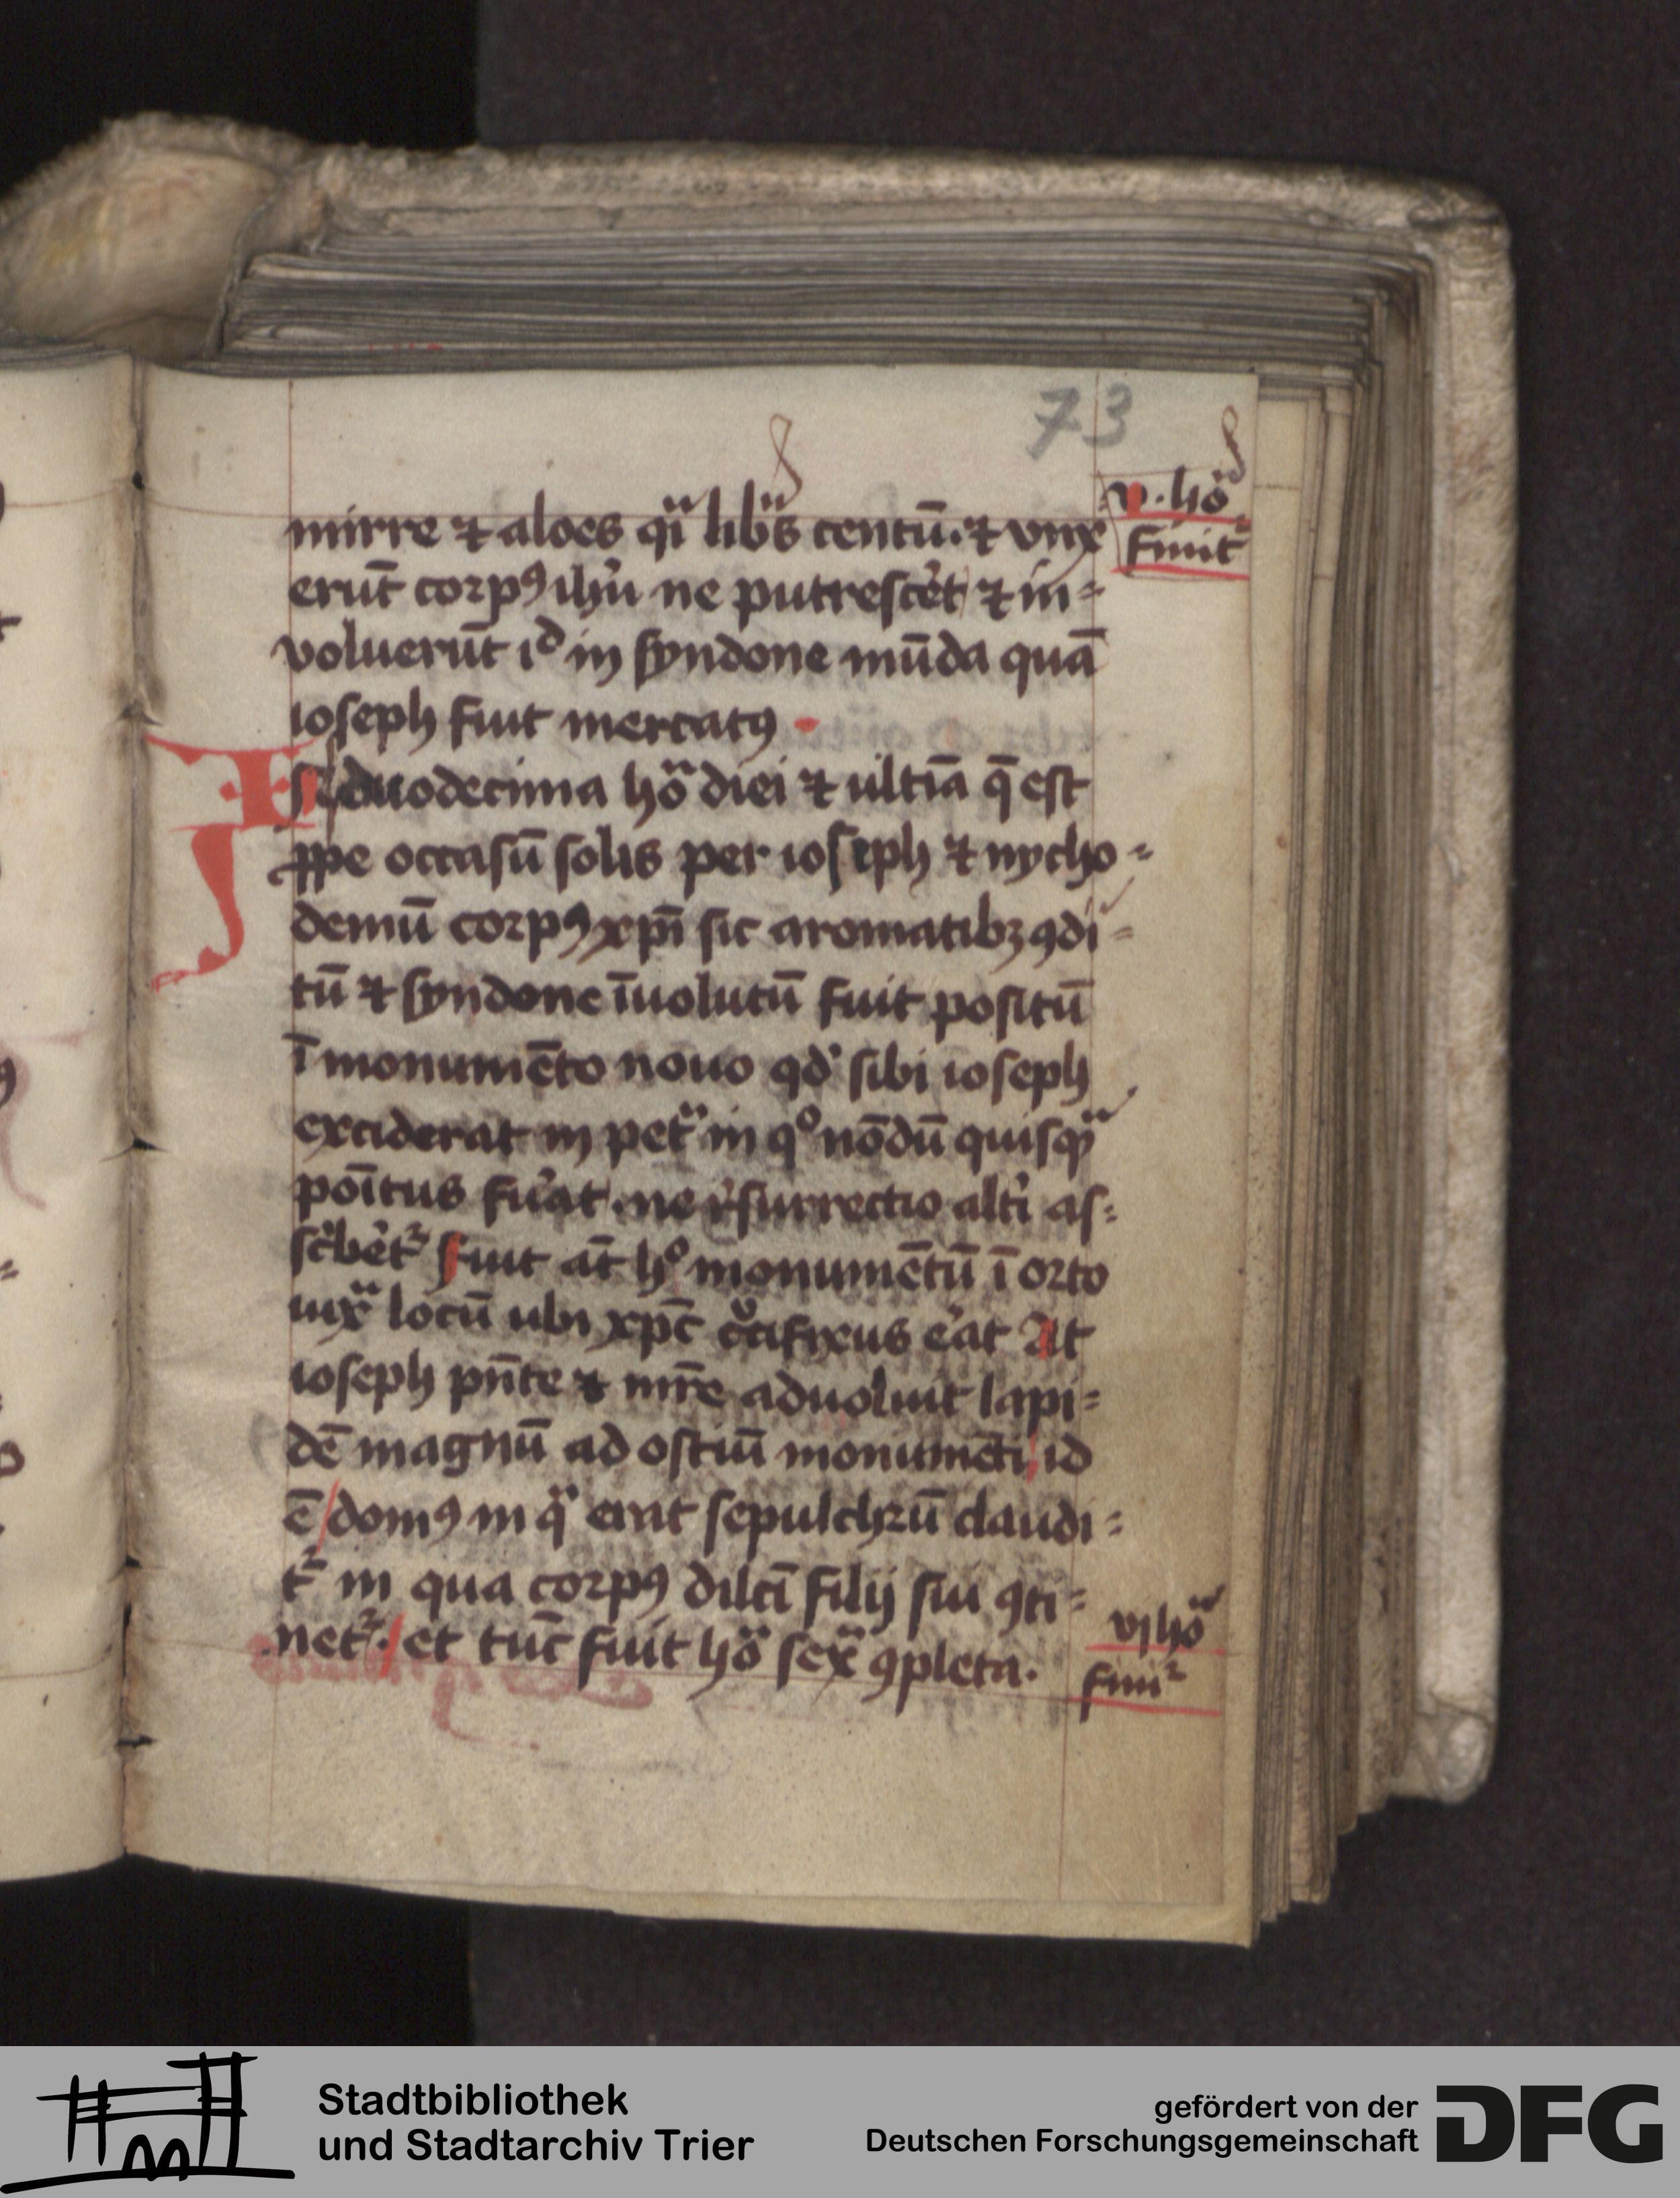 73
mirre ⁊ aloes qͣi libͣs centū. ⁊ vnx
erūt corpꝰ ihu̅ ne putresce̓t ⁊ in⸗
voluerūt id in syndone mūda quā
ioseph fuit mercatꝰ
v. hoͣ
finit᷑
In duodecima hoͣ diei ⁊ ultīa q̄ est
ꝓpe occasū solis per ioseph ⁊ nycho⸗
demū corpꝰ xp̄i sic aromatibꝫ ꝯdi⸗
tū ⁊ syndone īuolutū fuit positū
ī monumēto nouo qd̓ sibi ioseph
exciderat in petͣ in qͦ nōdū quisqͣ
poītus fu̓at. ne r̓surrectio alt̓i as⸗
sc̓be̓t᷑ fuit at̄ hͦ monumētū ī orto
iuxͣ locū ubi xp̄c cͮcifixus e̓at At
ioseph pn̄te ⁊ mr̄e aduoluit lapi⸗
dē magnū ad ostiū monumēti id
ē domꝰ in qͣ erat sepulchrū claudi⸗
t᷑ in qua corpꝰ dilc̄i filij sui ꝯti⸗
net᷑. et tūc fuit hoͣ sexͣ ꝯpleta.
vj hoͣ
finit᷑
Stadtbibliothek
und Stadtarchiv Trier
gefördert von der
Deutschen Forschungsgemeinschaft
DFG